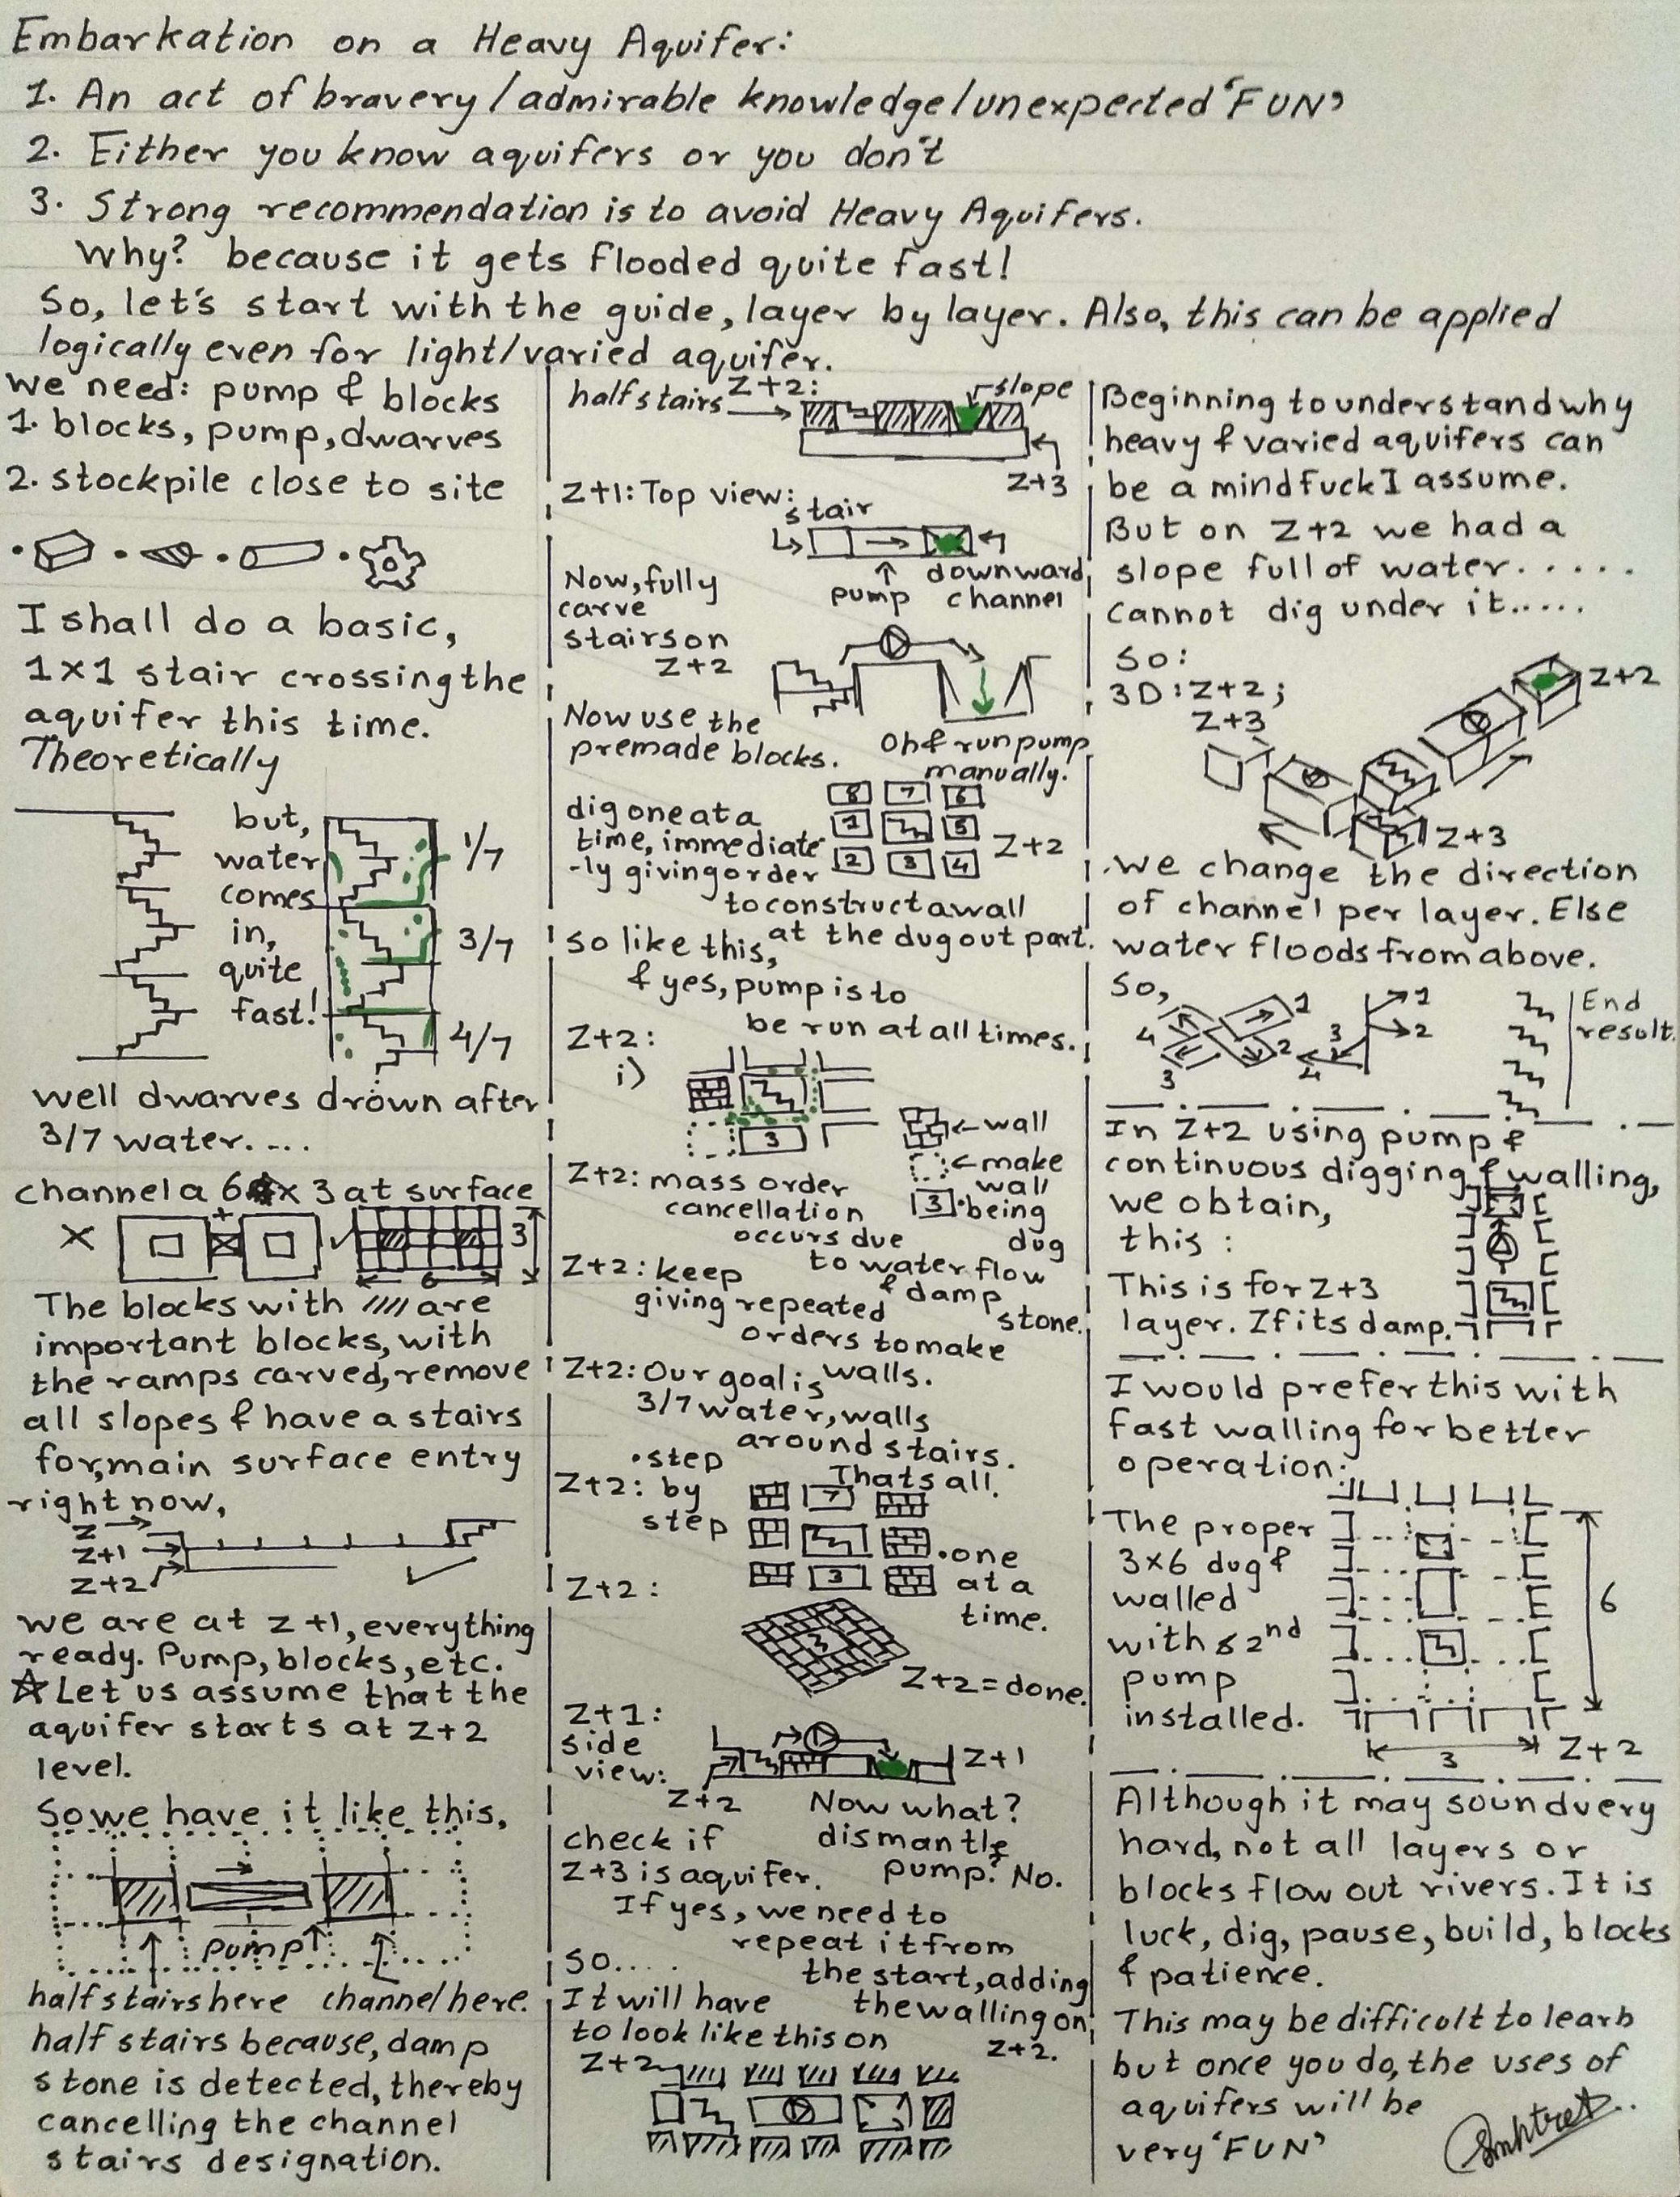 Embarkation on a Heavy Aquifer:
1. An act of bravery/admirable knowledge/unexpected 'FUN'
2. Either you know aquifers or you don't
3. Strong recommendation is to avoid Heavy Aquifers.
Why? because it gets flooded quite fast!
So, let's start with the guide, layer by layer. Also, this can be applied
logically even for light/varied aquifer.
we need: pump & blocks
1. blocks, pump, dwarves
2. stockpile close to site
I shall do a basic,
1x1 stair crossing the
aquifer this time.
Theoretically
but,
water
comes
in,
quite
fast!
1/7
3/7
4/7
well dwarves drown after
3/7 water....
channel a 6 x 3 at surface
X
+
3
6
The blocks with //// are
important blocks, with
the ramps carved, remove
all slopes & have a stairs
for, main surface entry
right now,
Z
Z+1
Z+2
we are at Z+1, everything
ready. Pump, blocks, etc.
☆ Let us assume that the
aquifer starts at Z+2
level.
So we have it like this,
pump
half stairs here channel here.
half stairs because, damp
stone is detected, thereby
cancelling the channel
stairs designation.
half stairs Z+2:
slope
Z+3
Z+1: Top view:
stair
pump
downward
channel
Now, fully
carve
stairs on
Z+2
Now use the
premade blocks.
Oh & run pump
manually.
8 7 6
1 5
2 3 4
Z+2
dig one at a
time, immediate
-ly giving order
to construct a wall
at the dug out part.
so like this,
& yes, pump is to
be run at all times.
Z+2:
i)
3
wall
make
wall
3 being
dug
Z+2: mass order
cancellation
occurs due
to water flow
& damp
stone.
Z+2: keep
giving repeated
orders to make
walls.
Z+2: Our goal is
3/7 water, walls
around stairs.
Thats all.
Z+2: • step
by
step
7
3
• one
at a
time.
Z+2:
Z+2 = done.
Z+1:
side
view:
Z+1
Z+2
Now what?
dismantle
pump? No.
check if
Z+3 is aquifer.
If yes, we need to
repeat it from
the start, adding
the walling on
Z+2.
So....
It will have
to look like this on
Z+2
Beginning to understand why
heavy & varied aquifers can
be a mindfuck I assume.
But on Z+2 we had a
slope full of water.....
cannot dig under it.....
So:
3D: Z+2;
Z+3
Z+2
Z+3
we change the direction
of channel per layer. Else
water floods from above.
So,
1
2
3
4
1
2
3
4
End
result.
In Z+2 using pump &
continuous digging & walling,
we obtain,
this:
This is for Z+3
layer. If its damp.
I would prefer this with
fast walling for better
operation:
The proper
3x6 dug &
walled
with 2nd
pump
installed.
6
3
Z+2
Although it may sound very
hard, not all layers or
blocks flow out rivers. It is
luck, dig, pause, build, blocks
& patience.
This may be difficult to learn
but once you do, the uses of
aquifers will be
very 'FUN'